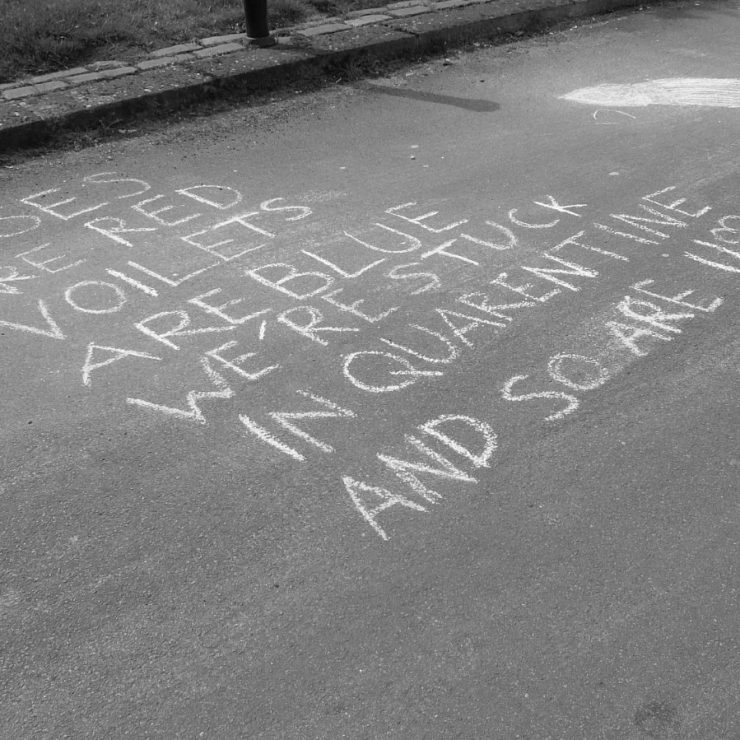 OES
RE RED
VOILETS
ARE BLUE
WE'RE STUCK
IN QUARENTINE
AND SO ARE